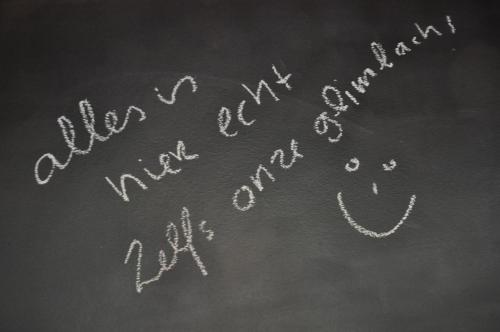 alles is
hier echt
zelfs onze glimlach,